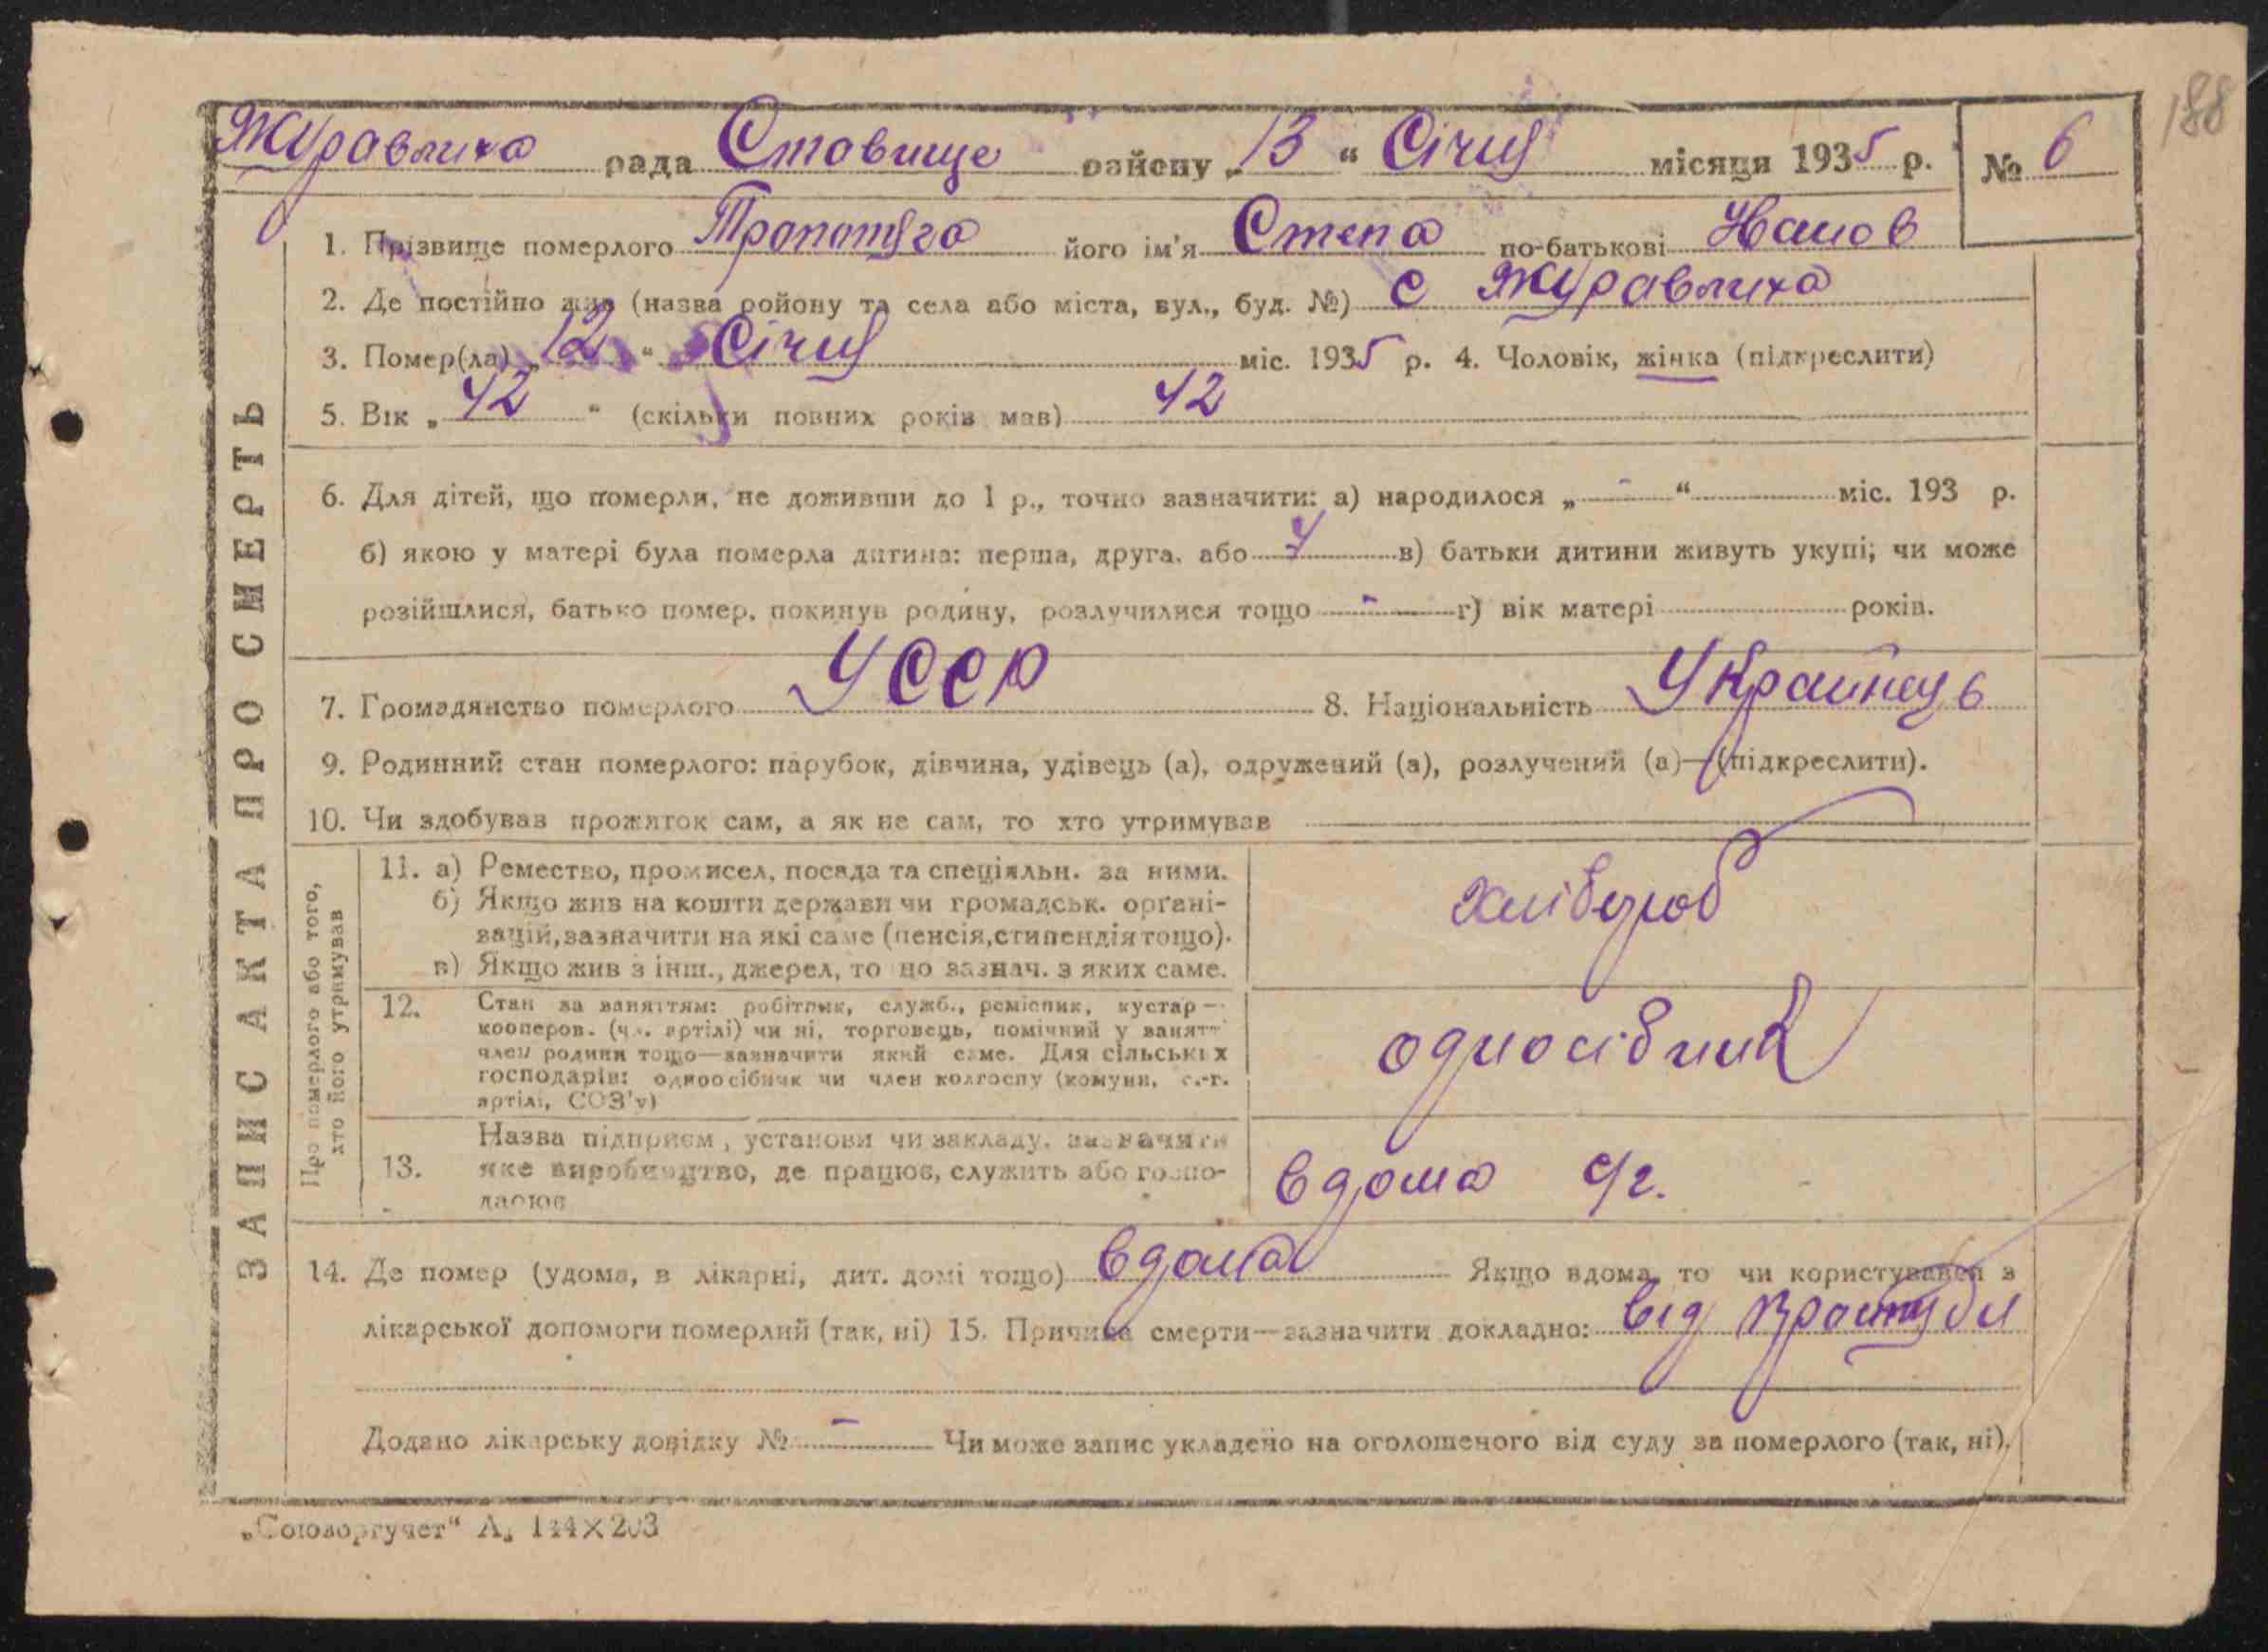 188
Журавлиха рада Ставище району „13“ Січня місяця 1935 р. № 6
1. Прізвище померлого його ім'я Степа по-батькові
2. Де постійно жив (назва ройону та села або міста, вул., буд. №) с Журавлиха
3. Помер(ла) „12“ Січня міс. 1935 р. 4. Чоловік, жінка (підкреслити)
5. Вік „42“ (скільки повних років мав) 42
6. Для дітей, що померли, не доживши до 1 р., точно зазначити: а) народилося „-“ міс. 193 р.
б) якою у матері була померла дитина: перша, друга, або в) батьки дитини живуть укупі; чи може
розійшлися, батько помер, покинув родину, розлучилися тощо - г) вік матері років.
7. Громадянство померлого УССР 8. Національність Украинець
9. Родинний стан померлого: парубок, дівчина, удівець (а), одружений (а), розлучений (а)—(підкреслити).
10. Чи здобував прожиток сам, а як не сам, то хто утримував
ЗАПИС АКТА ПРО СМЕРТЬ
Про померлого або того,
хто його утримував
11. а) Ремество, промисел, посада та спеціяльн. за ними.
б) Якщо жив на кошти держави чи громадськ. органі-
зацій, зазначити на які саме (пенсія, стипендія тощо).
в) Якщо жив з інш., джерел, то но зазнач. з яких саме.
хлібороб
12. Стан за заняттям: робітник, служб., ремісник, кустар—
кооперов. (чл. артілі) чи ні, торговець, помічний у занятті
член родини тощо—зазначити який саме. Для сільських
господарів: одноосібник чи член колгоспу (комуни, с.-г.
артілі, СОЗ'у)
односібник
13. Назва підприєм, установи чи закладу, зазначити
яке виробництво, де працює, служить або госпо-
дарює
вдома с/г.
14. Де помер (удома, в лікарні, дит. домі тощо) вдома Якщо вдома, то чи користувався з
лікарської допомоги померлий (так, ні) 15. Причина смерти—зазначити докладно: від
Додано лікарську довідку № - Чи може запис укладено на оголошеного від суду за померлого (так, ні).
„Союзоргучет“ А₅ 144×203